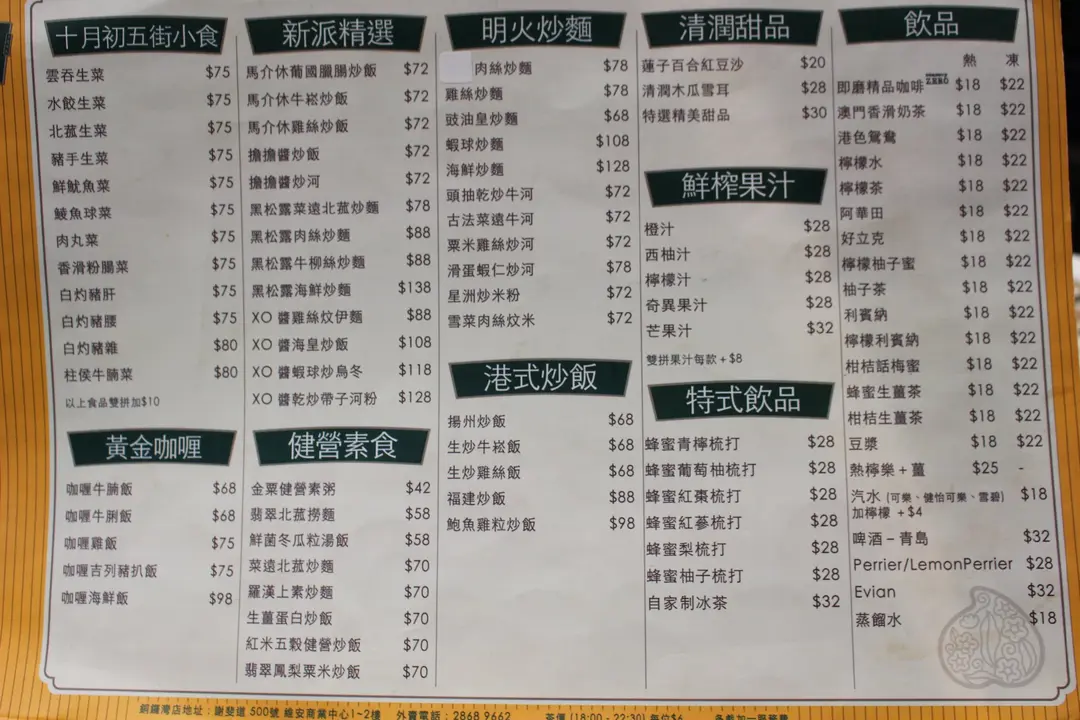 十月初五街小食
雲吞生菜 $75
水餃生菜 $75
北菰生菜 $75
豬手生菜 $75
鮮魷魚菜 $75
鯪魚球菜 $75
肉丸菜 $75
香滑粉腸菜 $75
白灼豬肝 $75
白灼豬腰 $75
白灼豬雜 $80
柱侯牛腩菜 $80
以上食品雙拼加$10
黃金咖喱
咖喱牛腩飯 $68
咖喱牛脷飯 $68
咖喱雞飯 $75
咖喱吉列豬扒飯 $75
咖喱海鮮飯 $98
新派精選
馬介休葡國臘腸炒飯 $72
馬介休牛崧炒飯 $72
馬介休雞絲炒飯 $72
擔擔醬炒飯 $72
擔擔醬炒河 $72
黑松露菜遠北菰炒麵 $78
黑松露肉絲炒麵 $88
黑松露牛柳絲炒麵 $88
黑松露海鮮炒麵 $138
XO 醬雞絲炆伊麵 $88
XO 醬海皇炒飯 $108
XO 醬蝦球炒烏冬 $118
XO 醬乾炒帶子河粉 $128
健營素食
金粟健營素粥 $42
翡翠北菰撈麵 $58
鮮菌冬瓜粒湯飯 $58
菜遠北菰炒麵 $70
羅漢上素炒麵 $70
生薑蛋白炒飯 $70
紅米五穀健營炒飯 $70
翡翠鳳梨粟米炒飯 $70
明火炒麵
肉絲炒麵 $78
雞絲炒麵 $78
豉油皇炒麵 $68
蝦球炒麵 $108
海鮮炒麵 $128
頭抽乾炒牛河 $72
古法菜遠牛河 $72
粟米雞絲炒河 $72
滑蛋蝦仁炒河 $78
星洲炒米粉 $72
雪菜肉絲炆米 $72
港式炒飯
揚州炒飯 $68
生炒牛崧飯 $68
生炒雞絲飯 $68
福建炒飯 $88
鮑魚雞粒炒飯 $98
清潤甜品
蓮子百合紅豆沙 $20
清潤木瓜雪耳 $28
特選精美甜品 $30
鮮榨果汁
橙汁 $28
西柚汁 $28
檸檬汁 $28
奇異果汁 $28
芒果汁 $32
雙拼果汁每款 + $8
特式飲品
蜂蜜青檸梳打 $28
蜂蜜葡萄柚梳打 $28
蜂蜜紅棗梳打 $28
蜂蜜紅蔘梳打 $28
蜂蜜梨梳打 $28
蜂蜜柚子梳打 $28
自家制冰茶 $32
飲品
熱 凍
即磨精品咖啡 ZERO $18 $22
澳門香滑奶茶 $18 $22
港色鴛鴦 $18 $22
檸檬水 $18 $22
檸檬茶 $18 $22
阿華田 $18 $22
好立克 $18 $22
檸檬柚子蜜 $18 $22
柚子茶 $18 $22
利賓納 $18 $22
檸檬利賓納 $18 $22
柑桔話梅蜜 $18 $22
蜂蜜生薑茶 $18 $22
柑桔生薑茶 $18 $22
豆漿 $18 $22
熱檸樂 + 薑 $25 -
汽水 (可樂、健怡可樂、雪碧) $18
加檸檬 + $4
啤酒 – 青島 $32
Perrier/LemonPerrier $28
Evian $32
蒸餾水 $18
銅鑼灣店地址：謝斐道 500號 維安商業中心1~2樓 外賣電話：2868 9662 茶價 (18:00 - 22:30) 每位$6